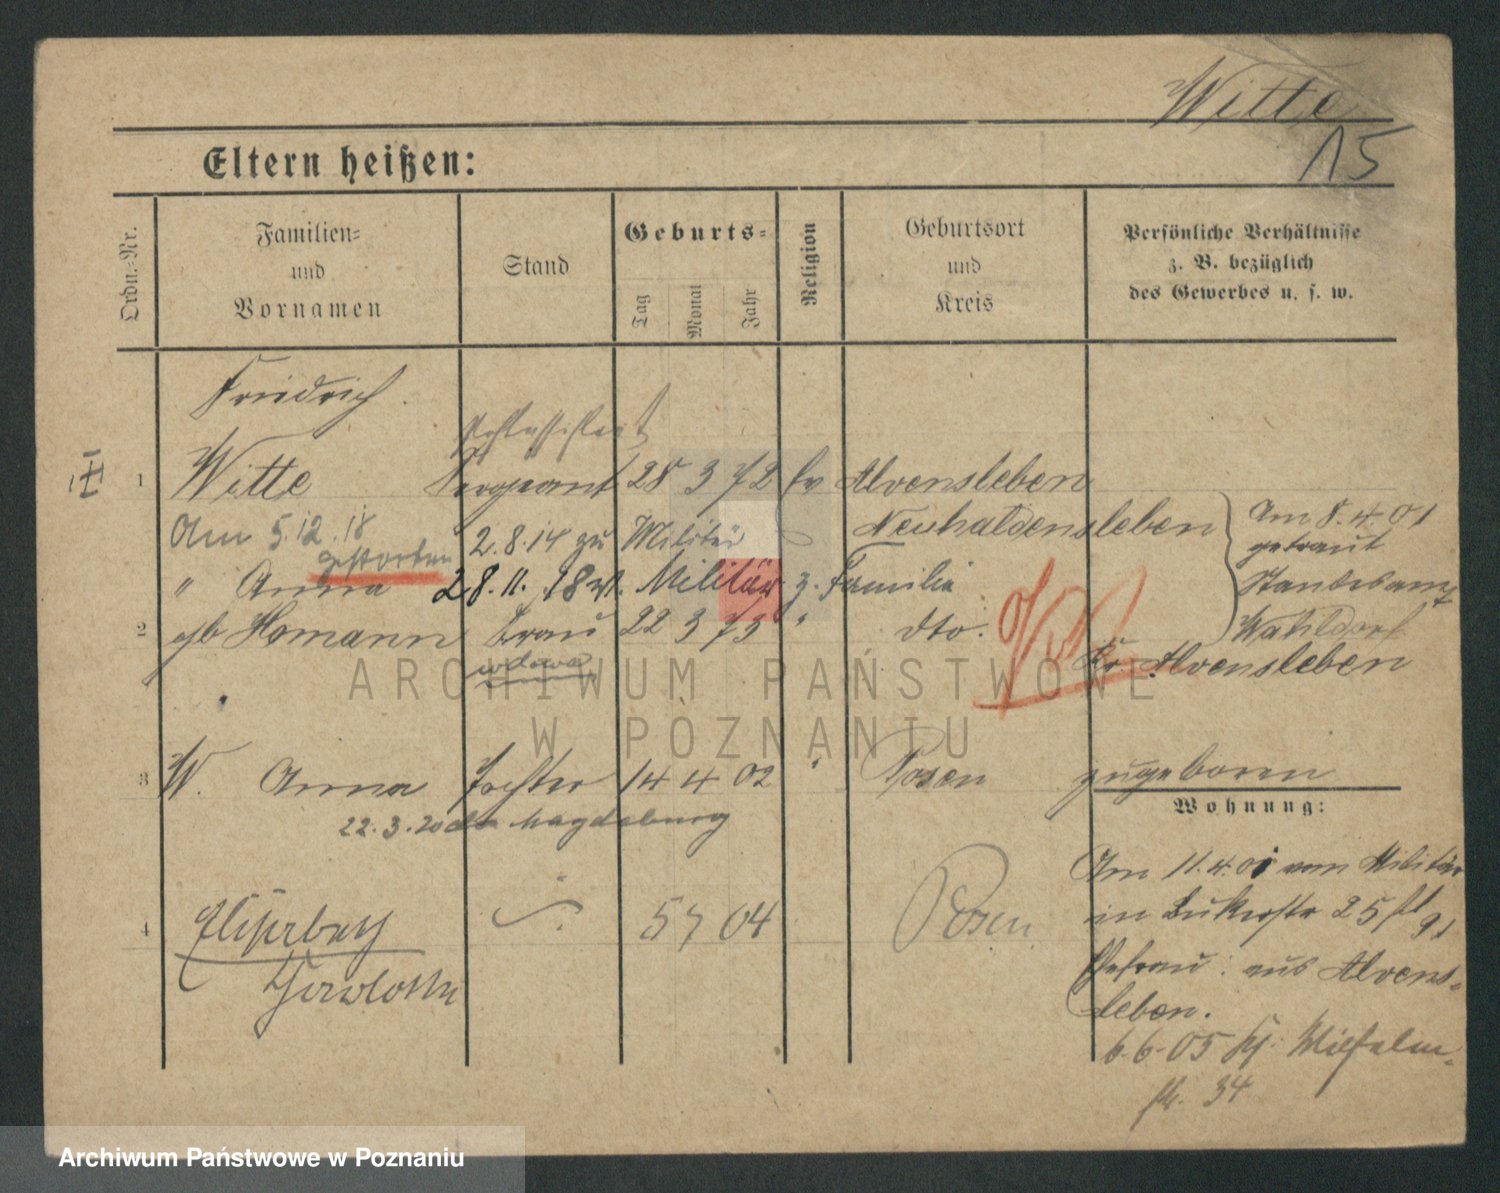 Witte
15
Eltern heißen:
Ordn.-Nr.
Familien-
und
Vornamen
Stand
Geburts-
Tag
Monat
Jahr
Religion
Geburtsort
und
Kreis
Persönliche Verhältnisse
z. B. bezüglich
des Gewerbes u. s. w.
Friedrich
1 Witte Sergeant 28 3 72 ev Alvensleben
Neuhaldensleben
Am 5.12.18
gestorben
2.8.14 zu Militär
Am 8.4.01
getraut
Standesamt
Wahldorf
Kr. Alvensleben
" Anna 28.11.18 v. Militär z. Familie
2 gb Homann Frau 22 3 73 " dto.
wdowa
3 W. Anna Tochter 14 4 02 " Posen zugeboren
22.3.20 Magdeburg
Wohnung:
4 Elisabeth 5 7 04 Posen
Am 11.4.01 vom Militär
in Bukerstr 25
Ehefrau: aus Alvens-
leben.
6.6.05 Wilhelm-
str. 34
ARCHIWUM PAŃSTWOWE
W POZNANIU
Archiwum Państwowe w Poznaniu